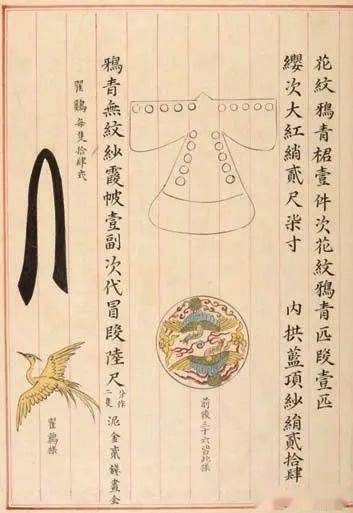 花紋鴉青裙壹件次花紋鴉青匹段壹匹
纓次大紅綃貳尺柒寸 內拱藍頂紗絹貳拾肆
前後三十六皆此樣
鴉青無紋紗霞帔壹副次代冒段陸尺 分作二隻 泥金 錢畫金
翟鷄每隻拾肆
翟鷄樣